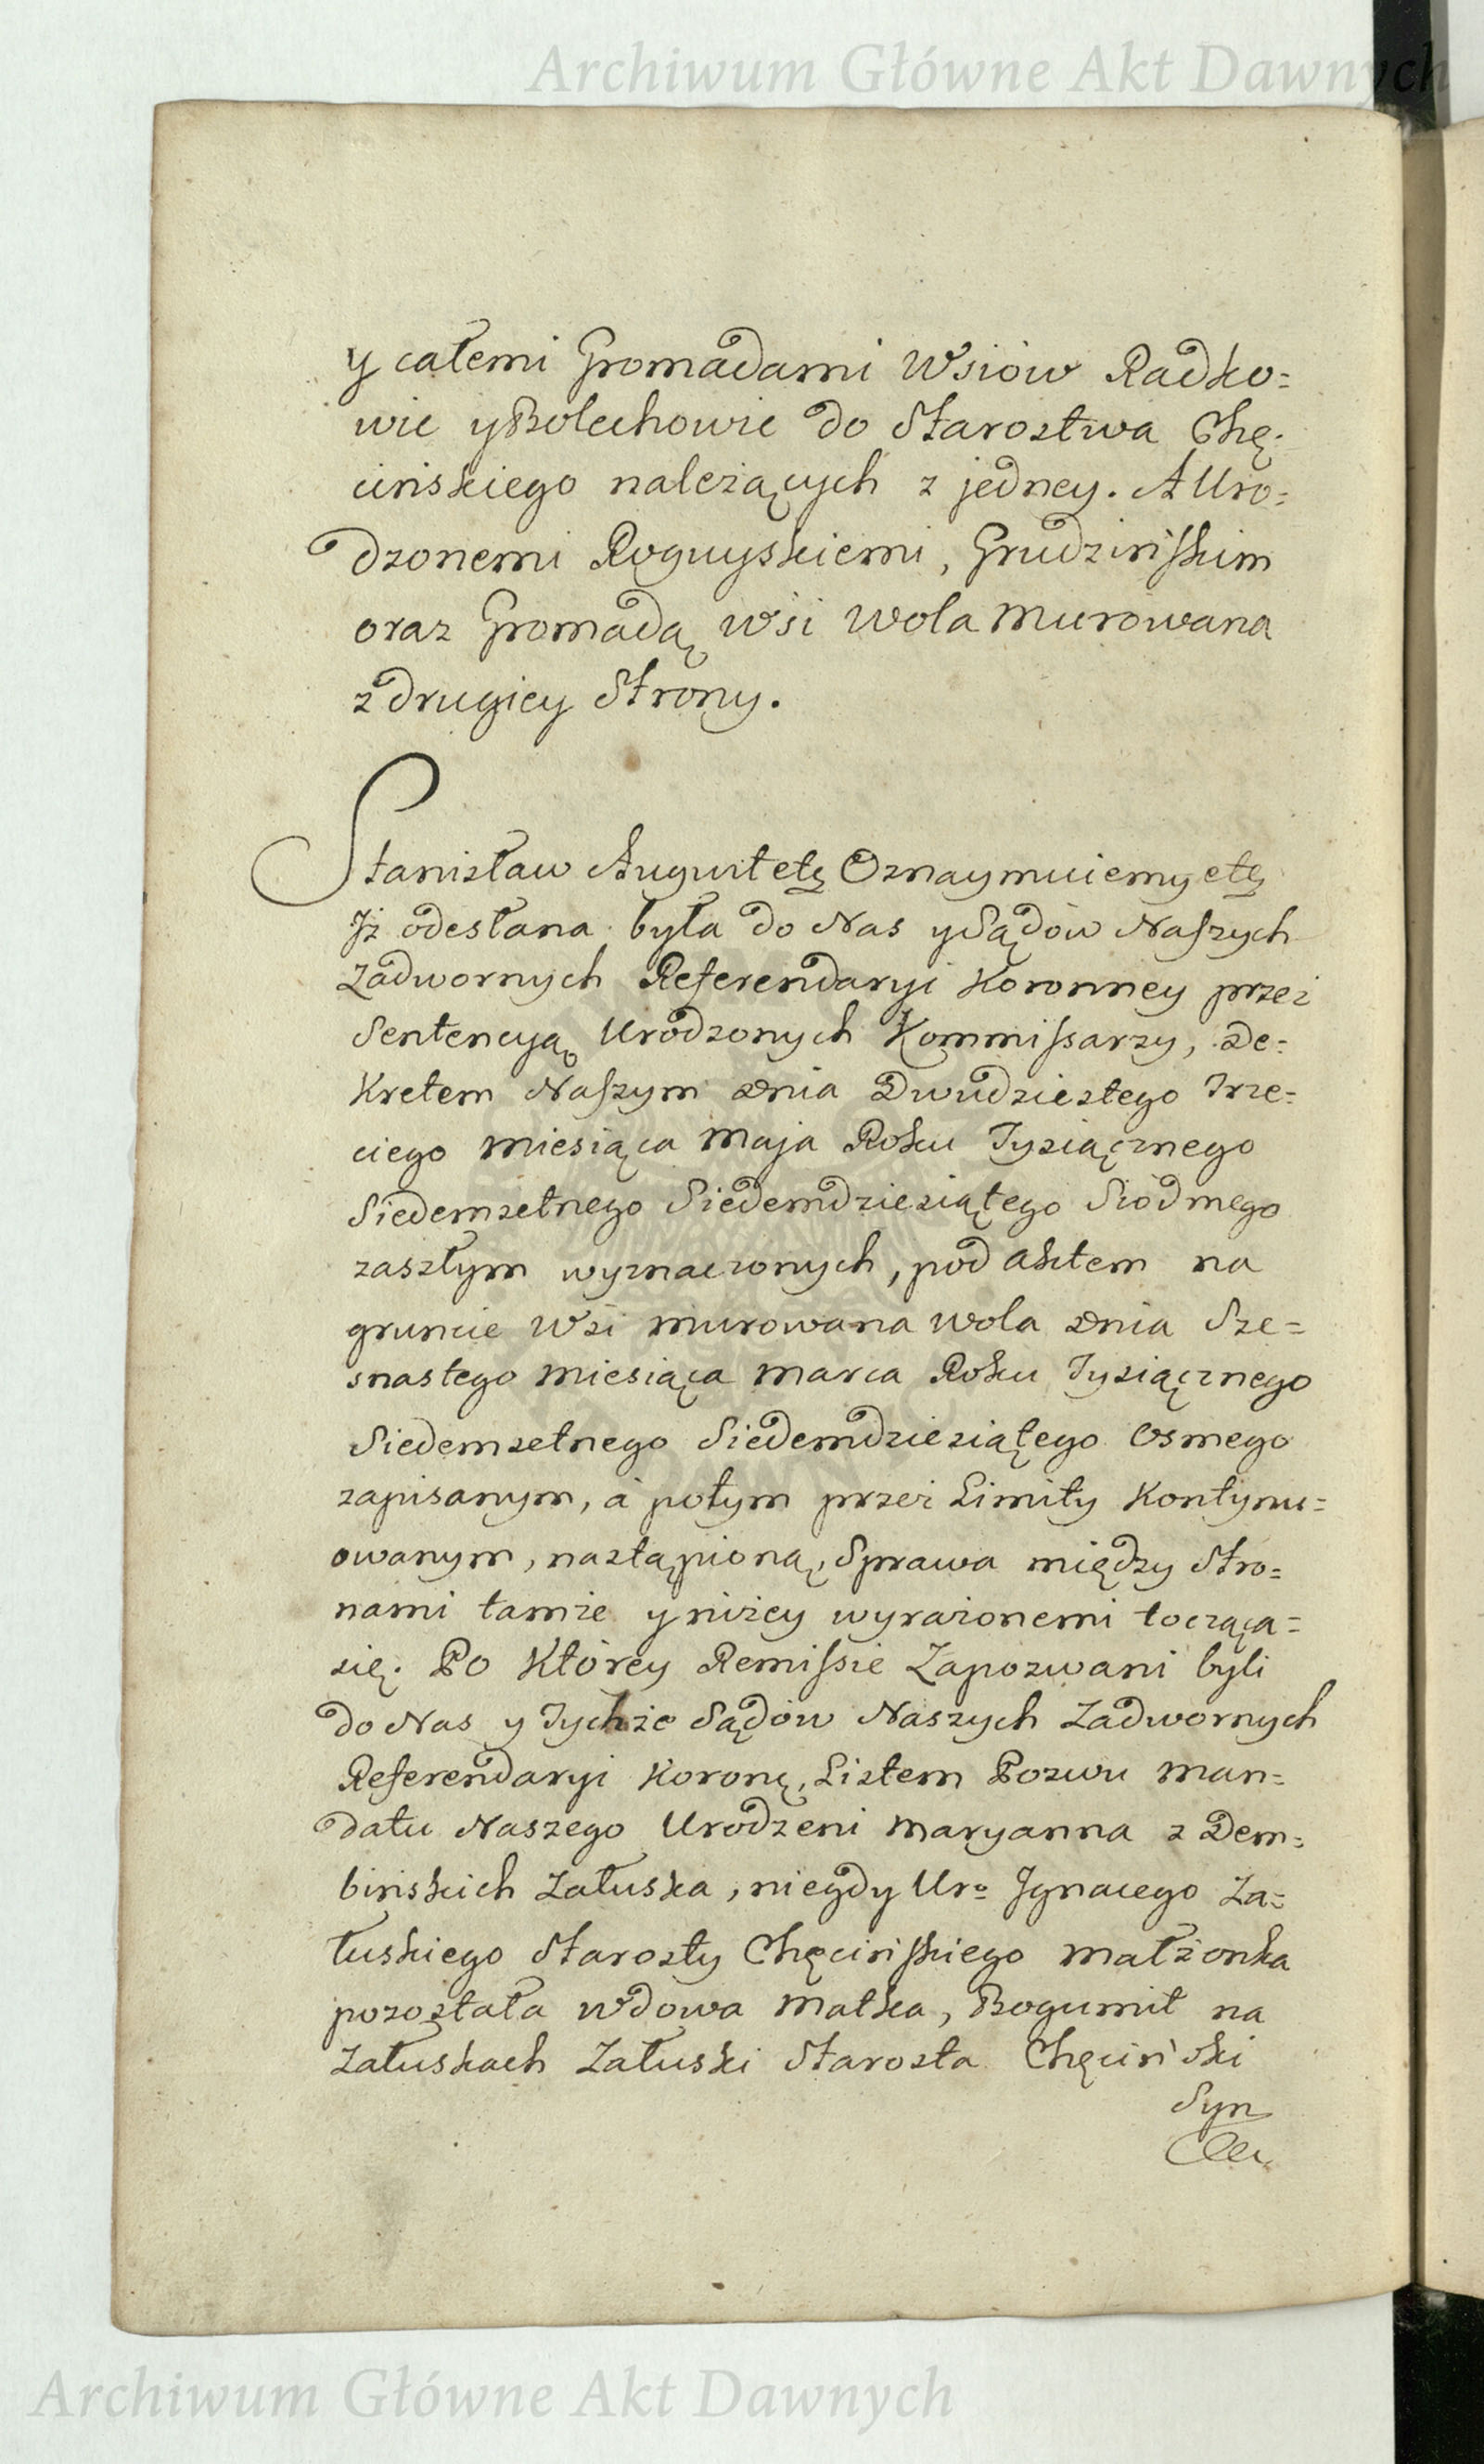 Archiwum Główne Akt Dawnych
y całemi Gromadami Wsiów Radko=
wie y Bolechowie do Starostwa Chę=
cińskiego należących z jedney. A Uro=
dzonemi Roguyskiemi, Grudzińskim
oraz Gromadą wsi Wola Murowana
z drugiey Strony.
Stanisław August etc Oznaymuiemy etc
Jż odesłana była do Nas y Sądów Naszych
Zadwornych Referendaryi Koronney przez
Sentencyą Urodzonych Kommissarzy, De=
kretem Naszym Dnia Dwudziestego Trze=
ciego Miesiąca Maja Roku Tysiącznego
Siedemsetnego Siedemdziesiątego Siódmego
zaszłym wyznaczonych, pod aktem na
gruncie Wsi Murowana Wola Dnia Sze=
snastego Miesiąca Marca Roku Tysiącznego
Siedemsetnego Siedemdziesiątego Osmego
zapisanym, á potym przez Limity Kontynu=
owanym, nastąpioną, Sprawa między Stro=
nami tamże y niżey wyrażonemi tocząca=
się. Po Którey Remissie Zapozwani byli
do Nas y Tychże Sądów Naszych Zadwornych
Referendaryi Koronę, Listem Pozwu Man=
datu Naszego Urodzeni Maryanna z Dem=
bińskich Załuska, niegdy Uro Jgnacego Za=
łuskiego Starosty Chęcińskiego małżonka
pozostała wdowa Matka, Bogumił na
Załuskach Załuski Starosta Chęciński
Syn
Archiwum Główne Akt Dawnych